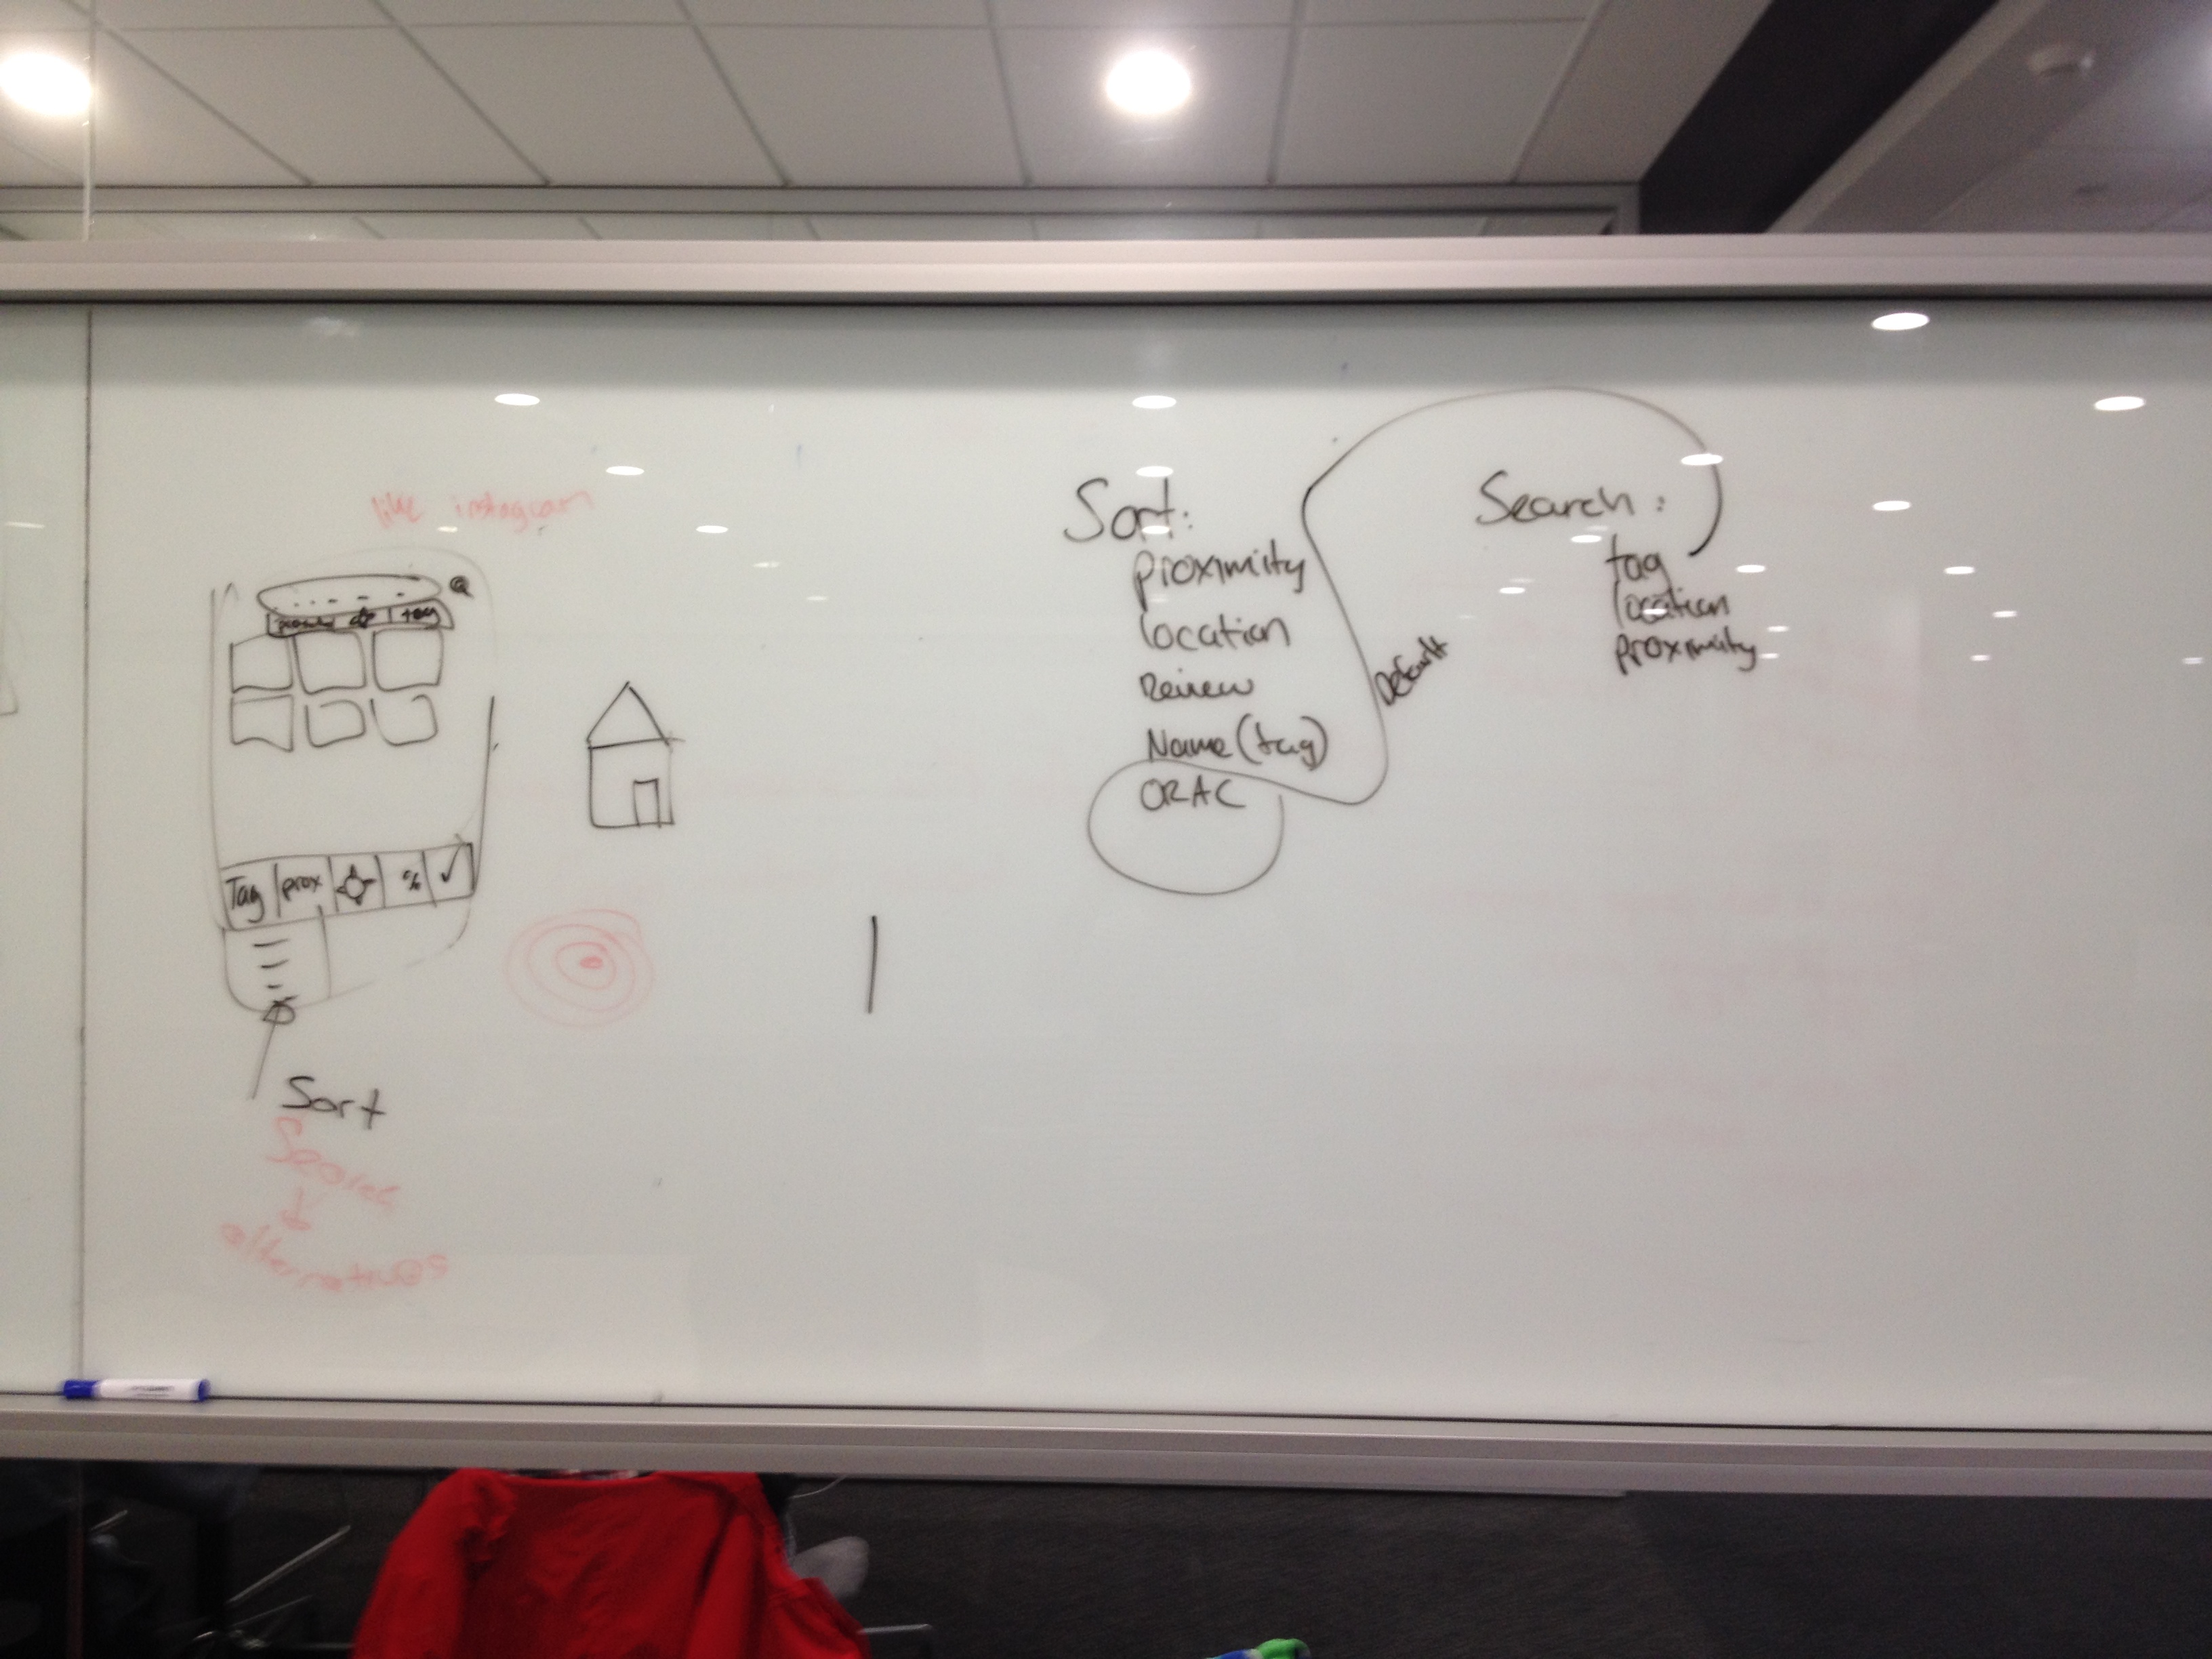 like instagram
tag
Tag prox % ✓
Sort
Search
alternatives
Sort:
proximity
location
Review
Name (tag)
ORAC
Default
Search:
tag
location
proximity